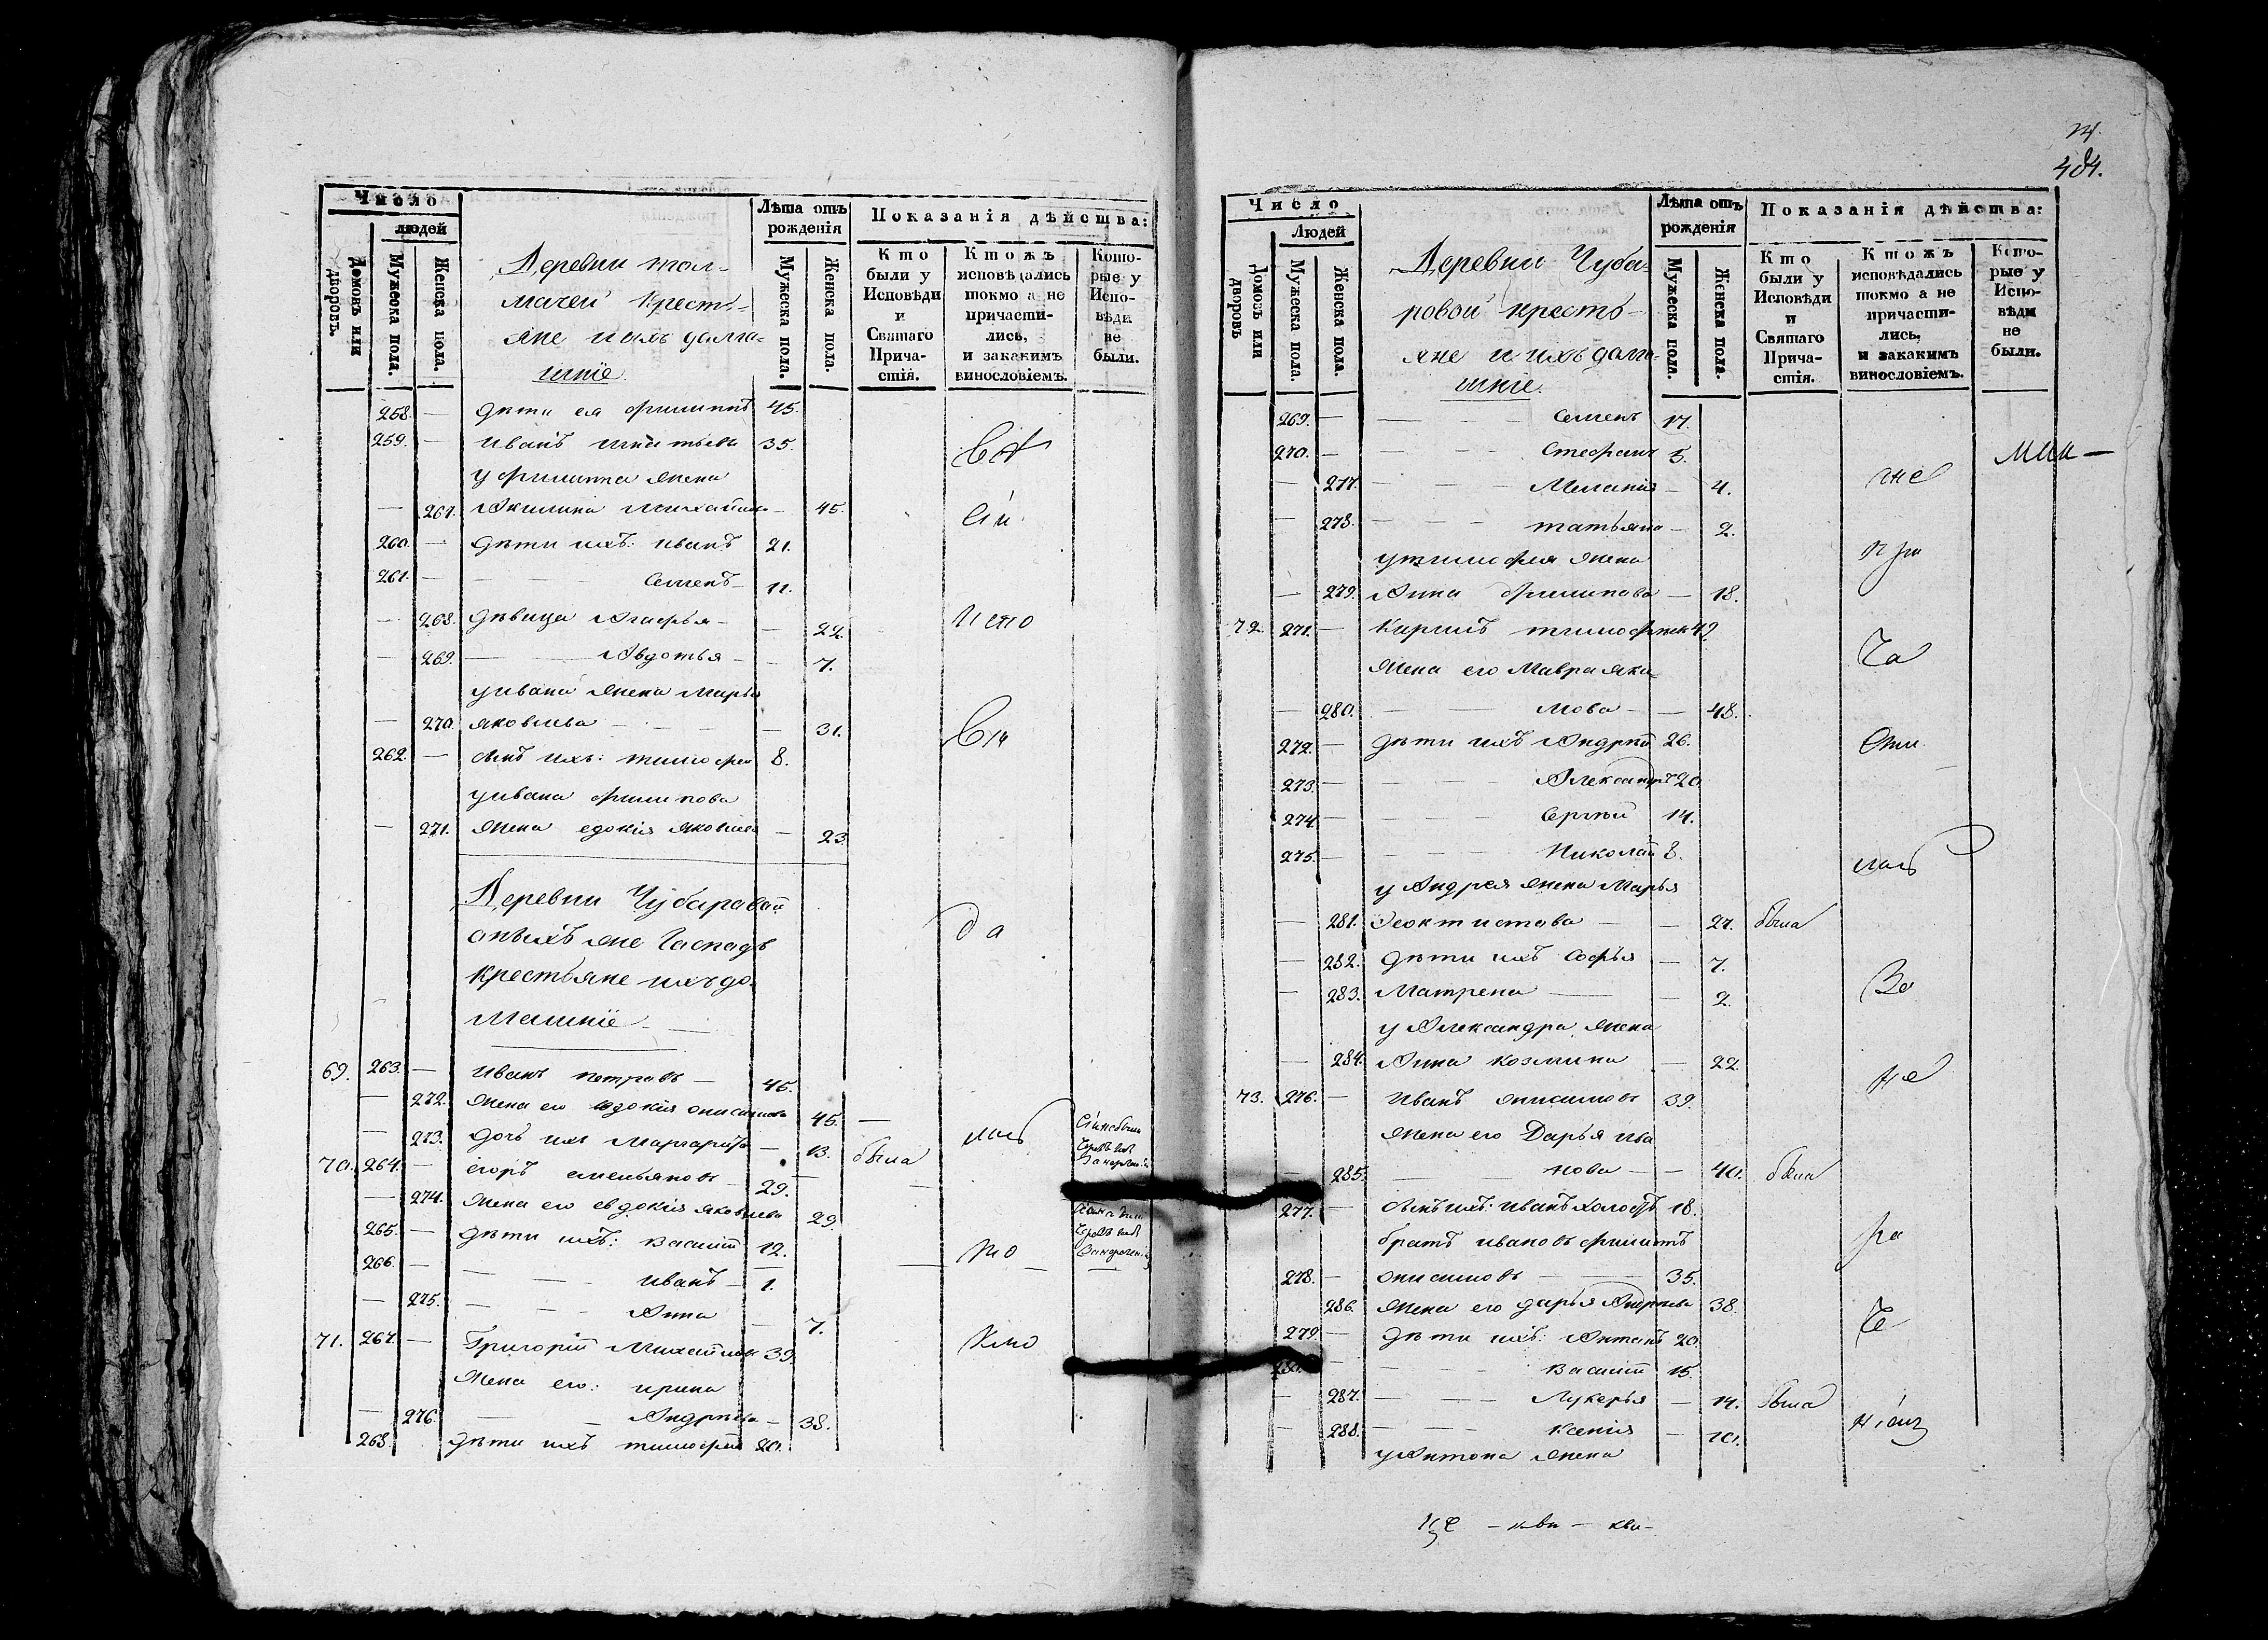 Число
людей
Домовъ или дворовъ.
Мужеска пола.
Женска пола.
Деревни тол-
мачей крестъ-
яне и ихъ дома-
шніе.
Лѣта отъ рожденія
Мужеска пола.
Женска пола.
Показанія дѣйства:
Кто были у Исповѣди и Святаго Прича-стія.
Ктожъ исповѣдались токмо а не причасти-лись, и закакимъ винословіемъ.
Кото-рые у Испо-вѣди не были.
258. — дѣти ея филиппъ 45.
259. — иванъ 35.
у филиппа жена
— 267. Акилина михайлова — 45.
260. — дѣти ихъ: иванъ 21.
261. — — — семенъ 11.
— 268. дѣвица Агафья — — 22.
— 269. — Авдотья — — 7.
у ивана жена марья
— 270. яковлева — — — 31.
262. — сынъ ихъ: тимофей 8.
у ивана филипова
— 271. жена едокия яковлева — 23.
Деревни Чубаравой
крестьяне ихъ до-
машніе
да
69. 263. — Иванъ петровъ — 46.
— 272. жена его едокия онисимова 45. —
— 273. дочь ихъ Маргарита — 13. была
70. 264. — егоръ емельяновъ — 29. —
— 274. жена его евдокия яковлева 29.
265. — дѣти ихъ: василій 12.
266. — — — иванъ — 1.
— 275. — — Анна — 7.
71. 267. — Григорій Михайловъ 39.
жена его: ирина
— 276. — — Андрѣева — 38.
268. дѣти ихъ тимофей 20.
484.
Число
Людей
Домовъ или дворовъ
Мужеска пола.
Женска пола.
Деревни Чуба-
ровой кресть-
яне и ихъ дома-
шніе.
Лѣта отъ рожденія
Мужеска пола.
Женска пола.
Показанія дѣйства:
Кто были у Исповѣди и Святаго Прича-стія.
Ктожъ исповѣдались токмо а не причасти-лись, и закакимъ винословіемъ.
Кото-рые у Испо-вѣди не были.
269. — — семенъ 17.
270. — — — — Стефанъ 5.
— 277. — — — Меланія — 4. же
— 278. — — — татьяна — 2.
у тимофея жена при
— 279. Анна филипова — 18.
72. 271. — Кирилъ тимофѣевъ 49.
жена его Мавра яки- ча
— 280. — — мова — — 48.
272. — дѣти ихъ Андрей 26. сти
273. — — — — Александръ 20.
274. — — — — Сергѣй 14.
275. — — — — Николай 8. лись
у Андрея жена Марья
— 281. Феоктистова — — 27. была
— 282. дѣти ихъ Софья — 7.
— 283. Матрена — — 2. За
у Александра жена
— 284. Анна козмина — 22.
73. 276. — Иванъ онисимовъ 39. не
жена его Дарья ива
— 285. — — нова — — 40. была
277. — сынъ ихъ: иванъ холостъ 18.
братъ ивановъ филиппъ ра
278. — онисимовъ — 35.
286. жена его дарья Андрѣева 38.
279. — дѣти ихъ: Антонъ 20.
280. — — — василій 15.
— 287. — — — Лукерья — 14. была
— 288. — — — ксенія — 10.
у Антона жена